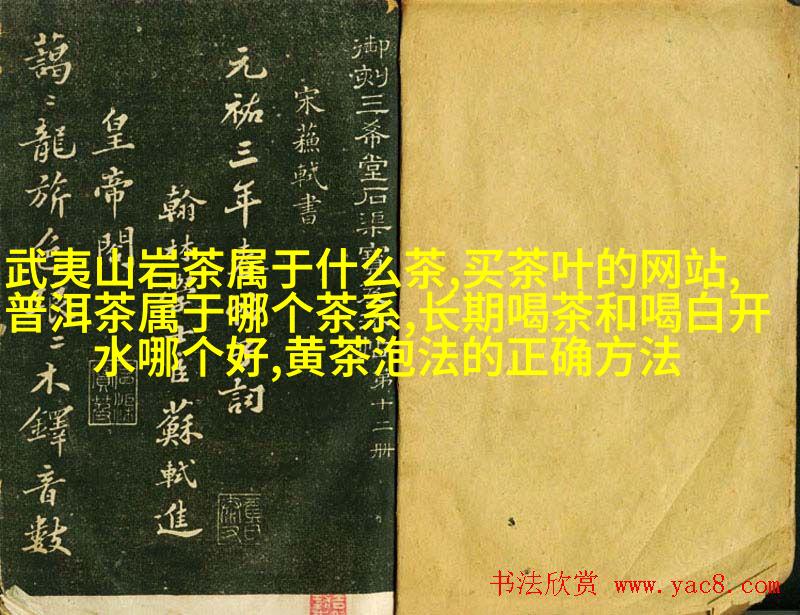 御刻三希堂石渠寶 第十二册
宋蘓軾書
元祐三年 詞
翰林學士臣蘇軾進
皇帝閣
藹〻龍旂色 〻木鐸音數
武夷山岩茶属于什么茶,买茶叶的网站,
普洱茶属于哪个茶系,长期喝茶和喝白开
水哪个好,黄茶泡法的正确方法
书法欣赏 www.yac8.com